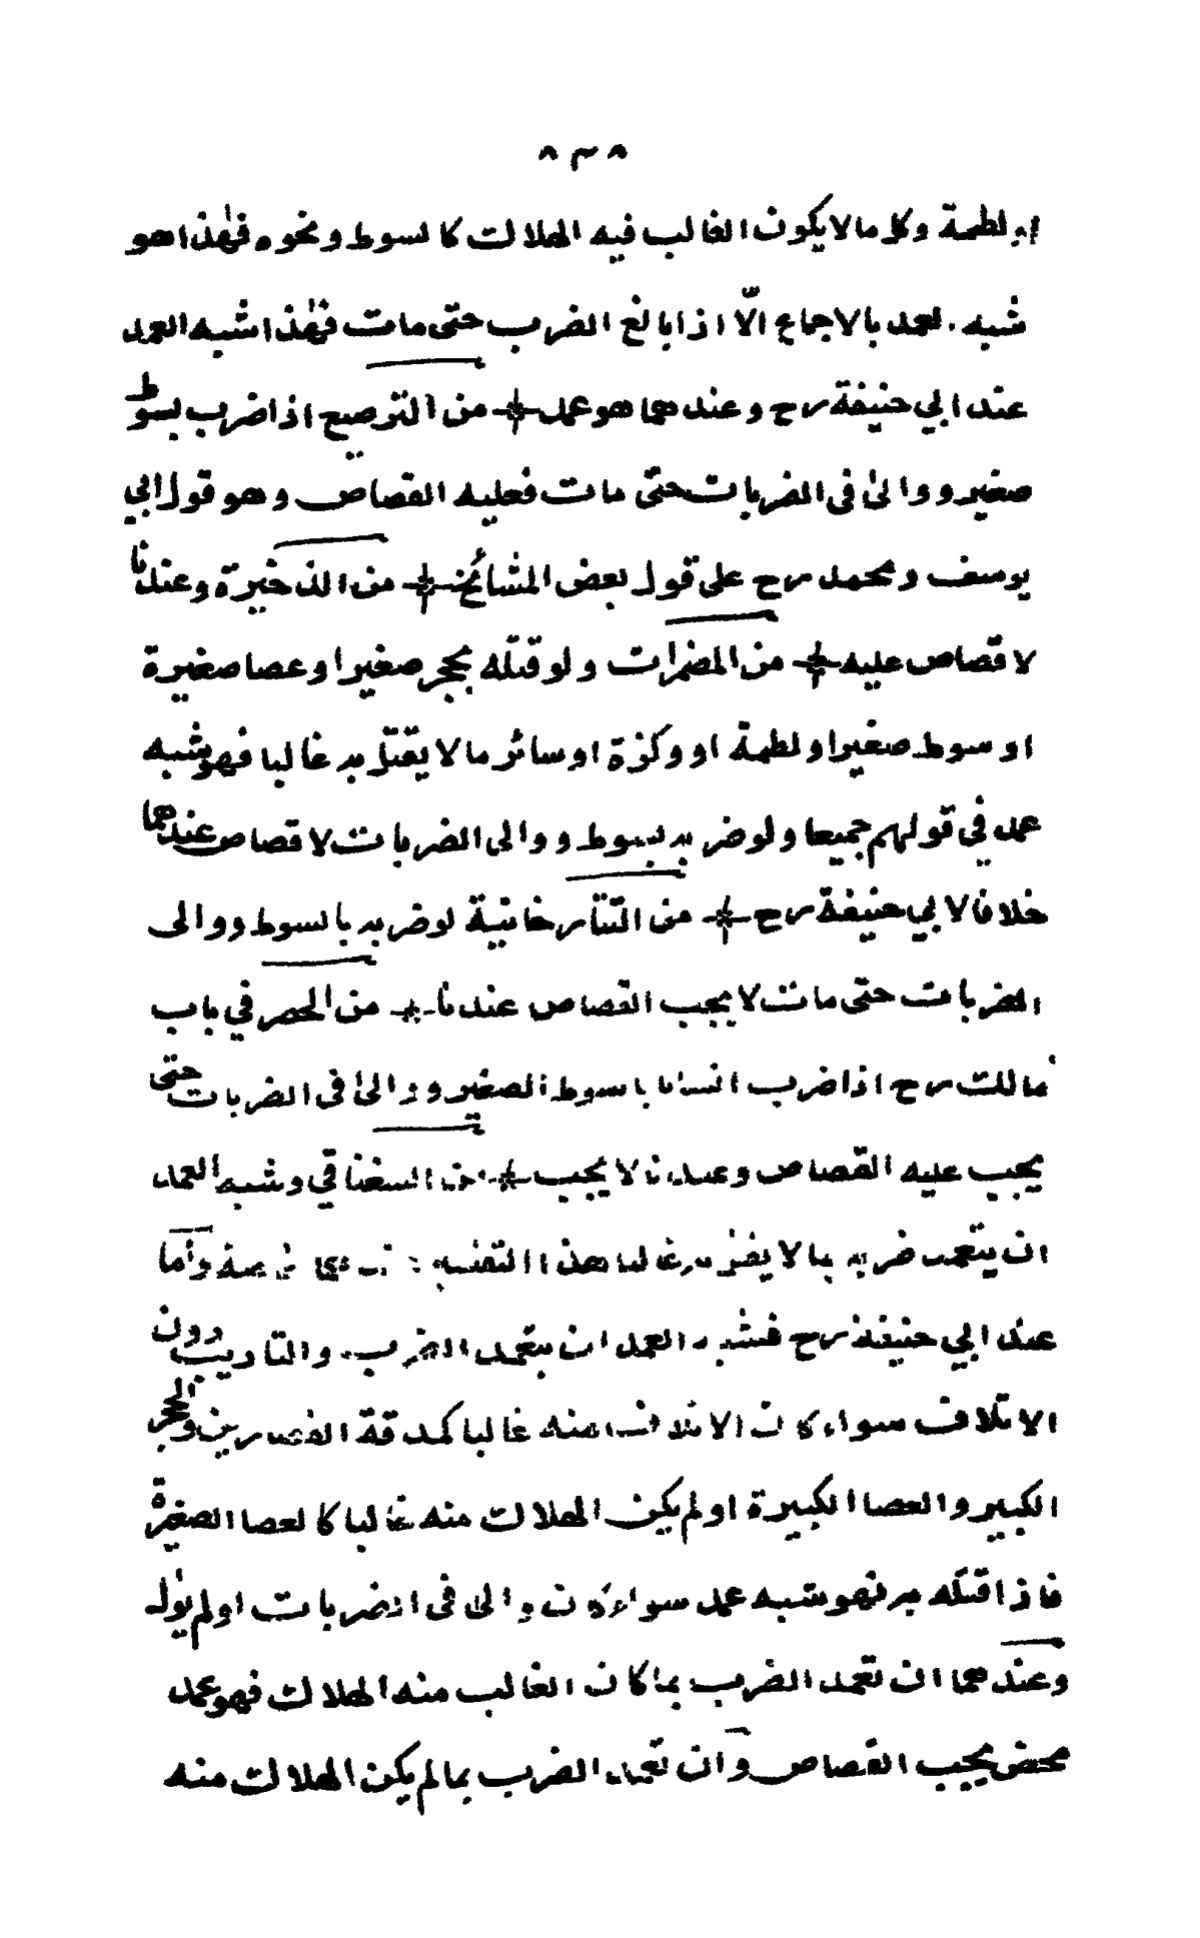 ٨٣٨
او لطمة وكل ما لا يكون الغالب فيه الهلاك كالسوط ونحوه فهٰذا هو
شبه العمد بالاجماع الّا اذا بالغ الضرب حتّى مات فهٰذا شبه العمد
عند ابي حنيفة رح وعندهما هو عمد من التوضيح اذا ضرب بسوط
صغير ووالىٰ فى الضربات حتّى مات فعليه القصاص وهو قول ابي
يوسف ومحمد رح على قول بعض المشائخ من الذخيرة وعندنا
لا قصاص عليه من المضمرات ولو قتله بحجر صغير او عصا صغيرة
او سوط صغير او لطمة او وكزة او سائر ما لا يقتل به غالبا فهو شبه
عمد في قولهم جميعا ولو ضربه بسوط ووالى الضربات لا قصاص عندهما
خلافا لابي حنيفة رح من التتارخانية لو ضربه بالسوط ووالى
الضربات حتى مات لا يجب القصاص عندنا من الحصر في باب
مالك رح اذا ضرب انسانا بالسوط الصغير ووالىٰ فى الضربات حتى
يجب عليه القصاص وعندنا لا يجب من السغناقي وشبه العمد
ان يتعمد ضربه بما لا يقتل به غالبا هذا التفسير وأما
عند ابي حنيفة رح فشبه العمد ان يتعمد الضرب والتاديب دون
الاتلاف سواء كان الاتلاف منه غالبا كمدقة القصارين والحجر
الكبير والعصا الكبيرة او لم يكن الهلاك منه غالبا كالعصا الصغيرة
فاذا قتله به فهو شبه عمد سواء كان والىٰ فى الضربات او لم يوٰل
وعندهما ان تعمد الضرب بما كان الغالب منه الهلاك فهو عمد
محض يجب القصاص وان تعمد الضرب بما لم يكن الهلاك منه